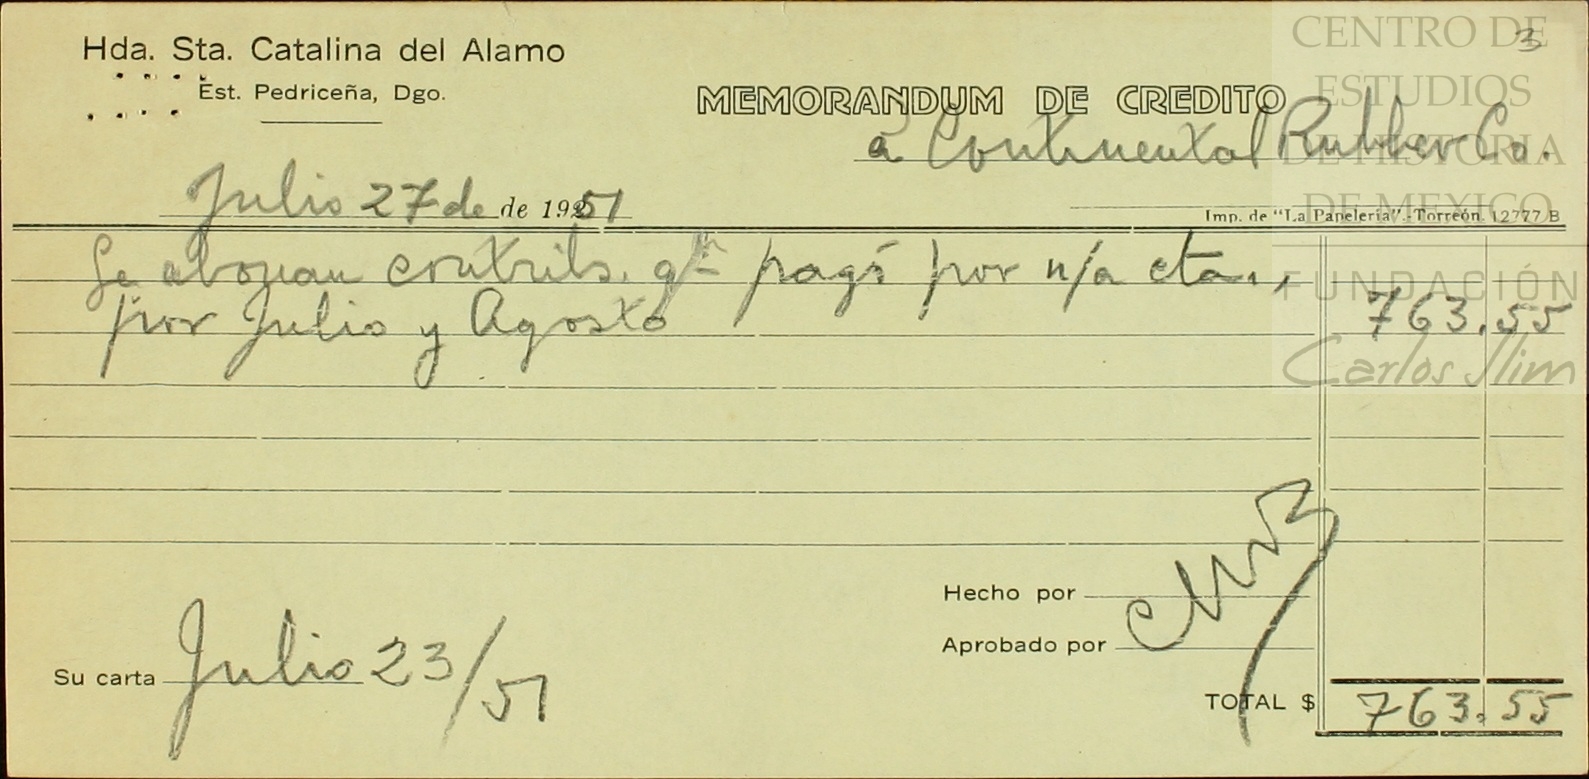 Hda. Sta. Catalina del Alamo
Est. Pedriceña, Dgo.
3
MEMORANDUM DE CREDITO
a Continental Rubber Co.
Julio 27 de de 1951
Imp. de "La Papelería".-Torreón. 12777 B
Se abonan contribs. qe pagó por n/a cta.,
por Julio y Agosto 763.55
Hecho por
Aprobado por
Su carta Julio 23/51
TOTAL $ 763.55
CENTRO DE
ESTUDIOS
DE HISTORIA
DE MEXICO
FUNDACIÓN
Carlos Slim